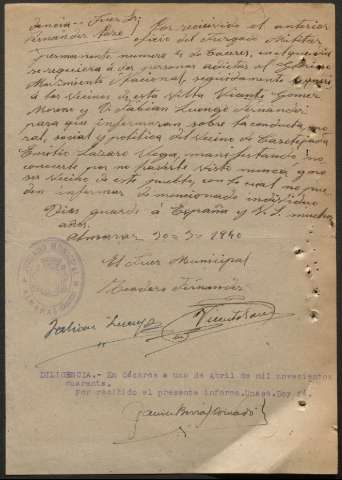 dencia.- Juez Sr. Por recibido el anterior
Fernández Pozo oficio del Juzgado Militar
permanente numero de Cáceres, en el que
requiera a dos personas adictas al Glorioso
Movimiento Nacional, seguidamente
a los vecinos de esta villa Vicente Gomez
Moreno y Fabian Luengo Fernandez
para que informaran sobre la conducta mo-
ral, social y politica del vecino de Casatejada
Lazaro Vega, manifestando no
conocerle por no haberle visto nunca y no
ser vecino de este pueblo, con lo cual no pue-
den informar de mencionado individuo
Dios guarde á España y V. S. muchos
años.
Almaraz 30-3-1940
El Juez Municipal
Fernández
Fabian Luengo Vicente
JUZGADO MUNICIPAL
ALMARAZ
DILIGENCIA.- En Cáceres a uno de Abril de mil novecientos
cuarenta.
Por recibido el presente informe. Unase. Doy fé.